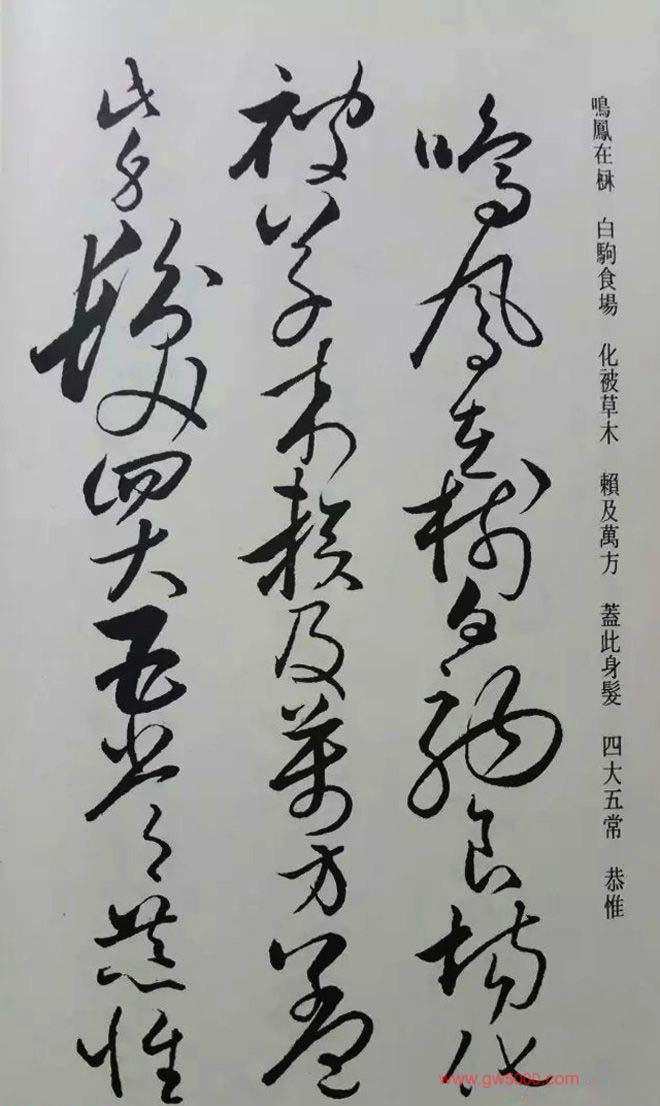 鳴鳳在 白駒食場 化被草木 賴及萬方 蓋此身髮 四大五常 恭惟
鳴鳳在樹白駒食場化
被草木賴及萬方蓋
此身髮四大五常恭惟
www.gw5000.com